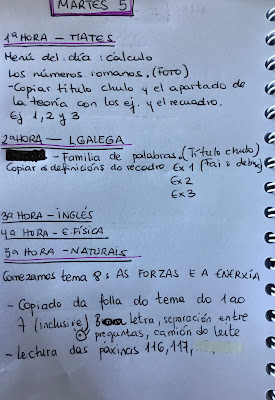 MARTES 5
1ª HORA - MATES
Menú del día: cálculo
Los números romanos. (FOTO)
- Copiar título chulo y el apartado de
la teoría con los ej. y el recuadro.
Ej 1, 2 y 3
2ª HORA - L GALEGA
- Familia de palabras. (Título chulo)
Copiar definicións do recadro Ex 1 (Fai o debuj
Ex 2
Ex 3
3ª HORA - INGLÉS
4ª HORA - E. FÍSICA
5ª HORA - NATURAIS
Comezamos tema 8: AS FORZAS E A ENERXÍA
- Copiado da folla do tema do 1 ao
7 (inclusive) letra, separación entre
preguntas, camión do leite
- Lectura das páxinas 116, 117,